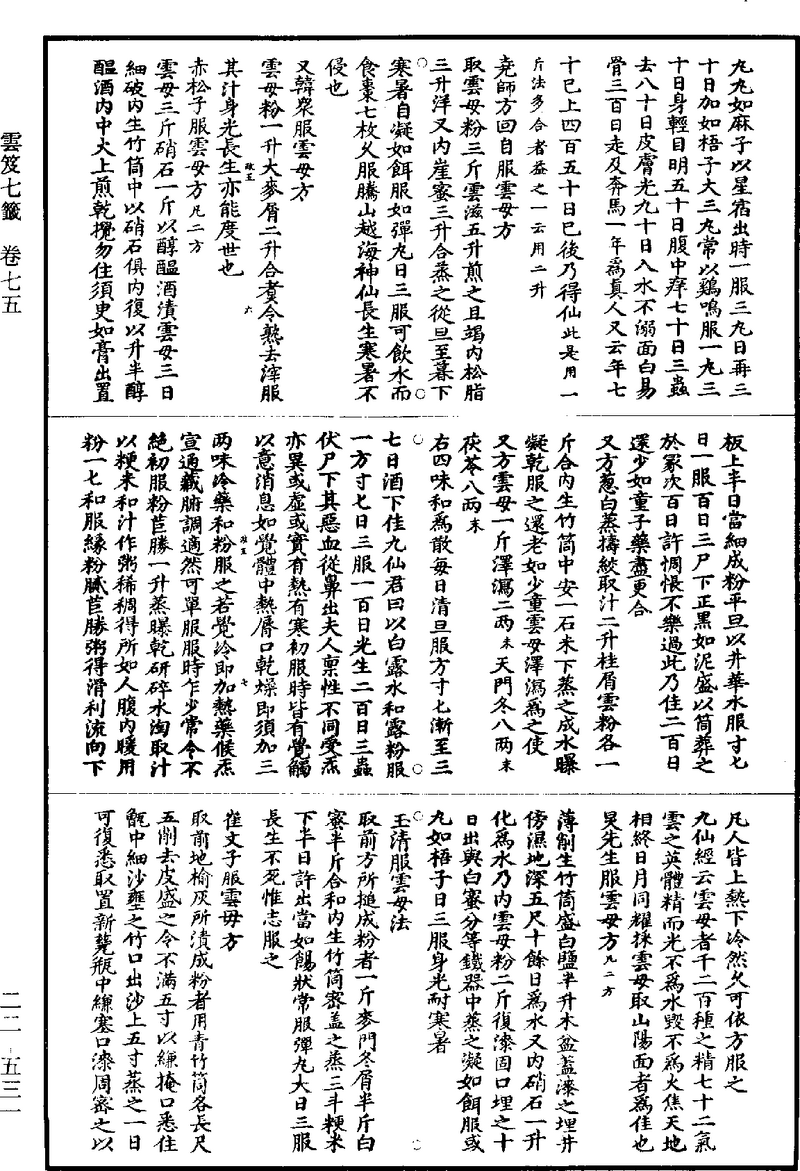 雲笈七籤　卷七五
二二－五三一
丸丸如麻子以星宿出時一服三丸日再三
十日加如梧子大三丸常以鷄鳴服一丸三
十日身輕目明五十日腹中痒七十日三蟲
去八十日皮膚光九十日入水不溺面白易
骨三百日走及奔馬一年爲真人又云年七
十已上四百五十日已後乃得仙此是用一
斤法多合者益之一云用二升
堯師方回自服雲母方
取雲母粉三斤雲滋五升煎之且竭内松脂
三升洋又内崖蜜三升合蒸之從旦至暮下
寒暑自凝如餌服如彈丸日三服可飲水而
食棗七枚久服騰山越海神仙長生寒暑不
侵也
又韓衆服雲母方
雲母粉一升大麥屑二升合煑令熟去滓服
其汁身光長生亦能度世也
赤松子服雲母方凡二方
雲母三斤硝石一斤以醇醖酒漬雲母三日
細破内生竹筒中以硝石俱内復以升半醇
醖酒内中火上煎乾攪勿住須臾如膏出置
板上半日當細成粉平旦以井華水服寸匕
日一服百日三尸下正黑如泥盛以筒葬之
於冢次百日許惆悵不樂過此乃佳二百日
還少如童子藥盡更合
又方葱白蒸擣絞取汁二升桂屑雲粉各一
斤合内生竹筒中安一石米下蒸之成水曝
凝乾服之還老如少童雲母澤瀉爲之使
又方雲母一斤澤瀉二兩末天門冬八兩末
茯苓八兩末
右四味和爲散每日清旦服方寸匕漸至三
七日酒下佳九仙君曰以白露水和露粉服
一方寸匕日三服一百日光生二百日三蟲
伏尸下其惡血從鼻出夫人禀性不同受炁
亦異或虚或實有熱有寒初服時皆有覺觸
以意消息如覺體中熱脣口乾燥即須加三
兩味冷藥和粉服之若覺冷即加熱藥候炁
宣通藏腑調適然可單服服時乍少常令不
絶初服粉苣勝一升蒸曝乾研碎水淘取汁
以粳米和汁作粥稀稠得所如人腹内暖用
粉一匕和服緣粉膩苣勝粥得滑利流向下
凡人皆上熱下冷然欠可依方服之
九仙經云雲母者千二百種之精七十二氣
雲之英體精而光不爲水毀不爲火焦天地
相終日月同耀採雲母取山陽面者爲佳也
炅先生服雲母方凡二方
薄削生竹筒盛白鹽半升木盆蓋漆之埋井
傍濕地深五尺十餘日爲水又内硝石一升
化爲水乃内雲母粉二斤復漆固口埋之十
日出與白蜜分等鐵器中蒸之凝如餌服或
丸如梧子日三服身光耐寒暑
玉清服雲母法
取前方所搥成粉者一斤麥門冬屑半斤白
蜜半斤合和内生竹筒密盖之蒸三斗粳米
下半日許出當如餳狀常服彈丸大日三服
長生不死惟志服之
崔文子服雲母方
取前地榆灰所漬成粉者用青竹筒各長尺
五削去皮盛之令不滿五寸以縑掩口悉住
甑中細沙壅之竹口出沙上五寸蒸之一日
可復悉取置新甆瓶中縑塞口漆周密之以